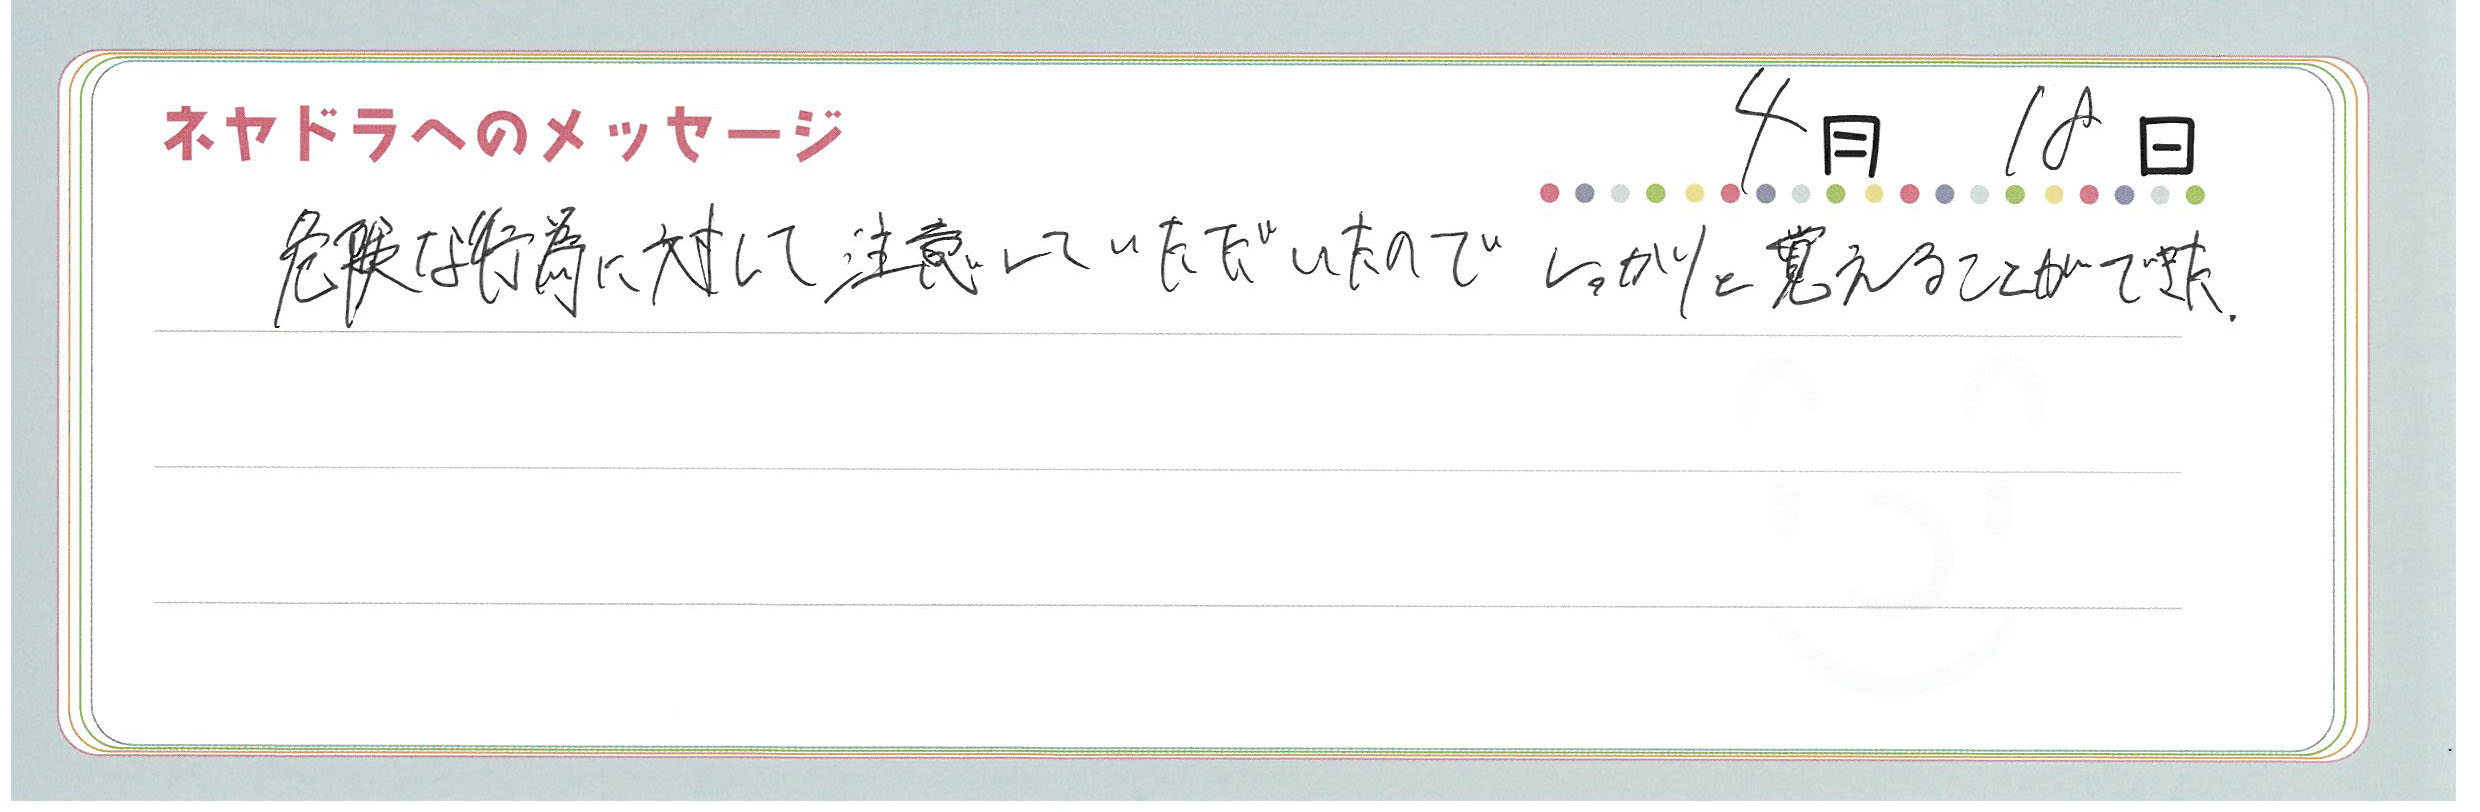 ネヤドラへのメッセージ 4月 18日
危険な行為に対して注意していただいたので しっかりと覚えることができた.